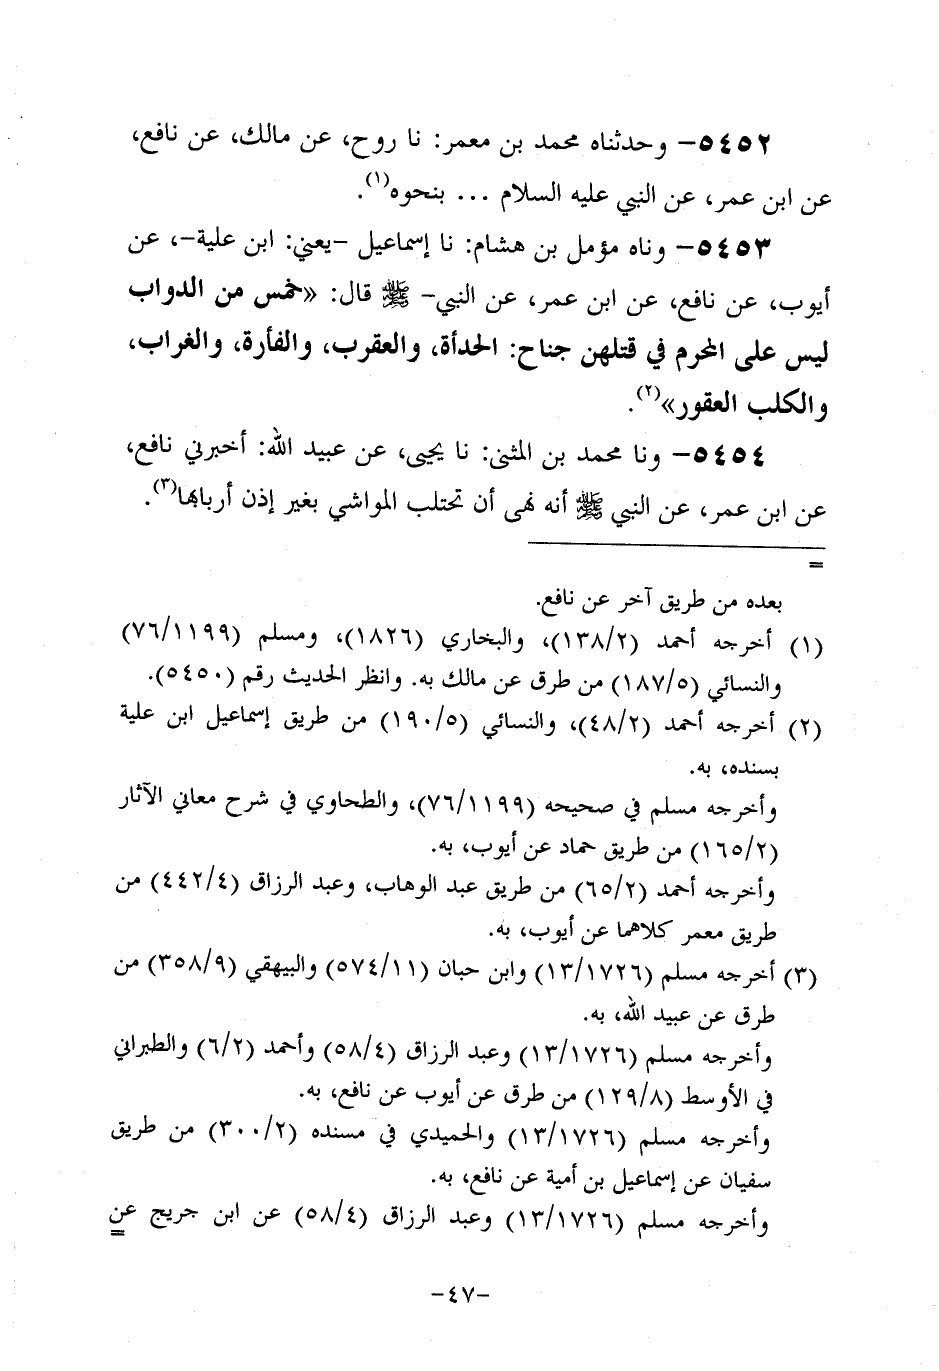 ٥٤٥٢– وحدثناه محمد بن معمر: نا روح، عن مالك، عن نافع،
عن ابن عمر، عن النبي عليه السلام ... بنحوه(١).
٥٤٥٣– وناه مؤمل بن هشام: نا إسماعيل –يعني: ابن علية–، عن
أيوب، عن نافع، عن ابن عمر، عن النبي– ﷺ قال: «خمس من الدواب
ليس على المحرم في قتلهن جناح: الحدأة، والعقرب، والفأرة، والغراب،
والكلب العقور»(٢).
٥٤٥٤– ونا محمد بن المثنى: نا يحيى، عن عبيد الله: أخبرني نافع،
عن ابن عمر، عن النبي ﷺ أنه نهى أن تحتلب المواشي بغير إذن أربابها(٣).
=
بعده من طريق آخر عن نافع.
(١) أخرجه أحمد (١٣٨/٢)، والبخاري (١٨٢٦)، ومسلم (٧٦/١١٩٩)
والنسائي (١٨٧/٥) من طرق عن مالك به. وانظر الحديث رقم (٥٤٥٠).
(٢) أخرجه أحمد (٤٨/٢)، والنسائي (١٩٠/٥) من طريق إسماعيل ابن علية
بسنده، به.
وأخرجه مسلم في صحيحه (٧٦/١١٩٩)، والطحاوي في شرح معاني الآثار
(١٦٥/٢) من طريق حماد عن أيوب، به.
وأخرجه أحمد (٦٥/٢) من طريق عبد الوهاب، وعبد الرزاق (٤٤٢/٤) من
طريق معمر كلاهما عن أيوب، به.
(٣) أخرجه مسلم (١٣/١٧٢٦) وابن حبان (٥٧٤/١١) والبيهقي (٣٥٨/٩) من
طرق عن عبيد الله، به.
وأخرجه مسلم (١٣/١٧٢٦) وعبد الرزاق (٥٨/٤) وأحمد (٦/٢) والطبراني
في الأوسط (١٢٩/٨) من طرق عن أيوب عن نافع، به.
وأخرجه مسلم (١٣/١٧٢٦) والحميدي في مسنده (٣٠٠/٢) من طريق
سفيان عن إسماعيل بن أمية عن نافع، به.
وأخرجه مسلم (١٣/١٧٢٦) وعبد الرزاق (٥٨/٤) عن ابن جريج عن
=
–٤٧–